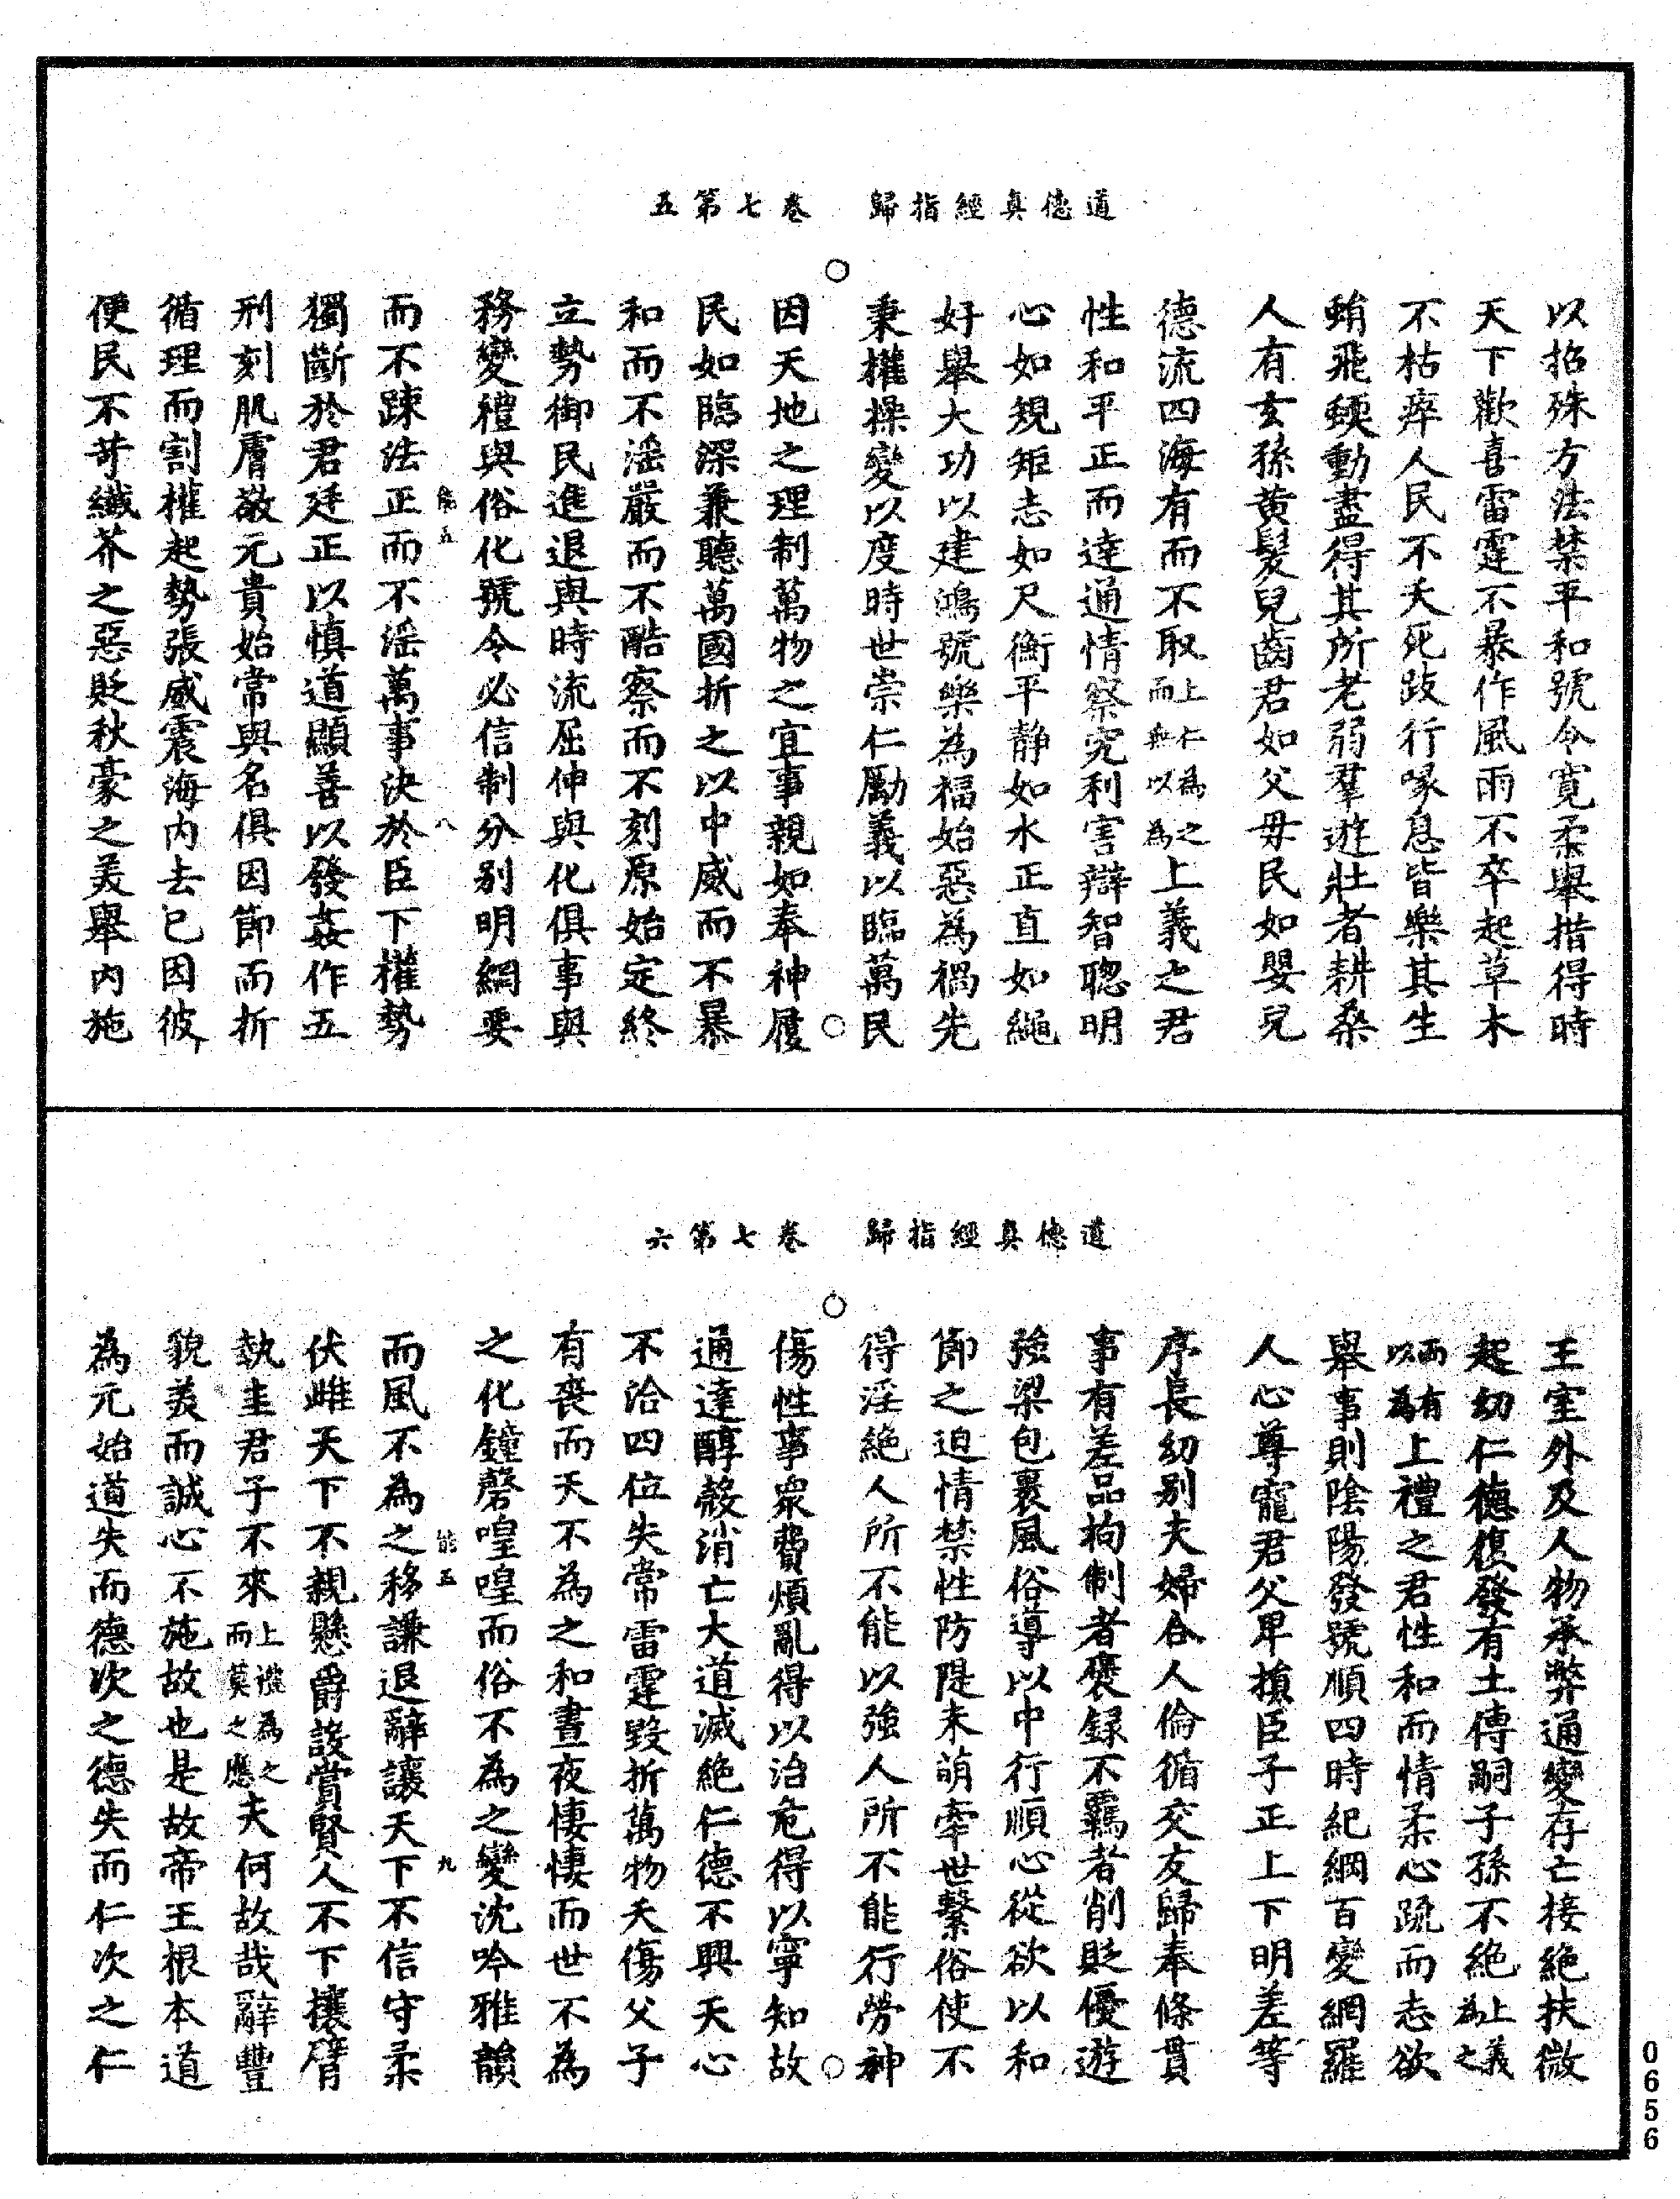 道德真經指歸 卷七第五
以招殊方法禁平和號令寬柔舉措得時
天下歡喜雷霆不暴作風雨不卒起草木
不枯瘁人民不夭死跂行喙息皆樂其生
蜎飛蝡動盡得其所老弱羣遊壯者耕桑
人有玄孫黃髮兒齒君如父母民如嬰兒
德流四海有而不取上仁為之而無以為上義之君
性和平正而達通情察究利害辯智聰明
心如規矩志如尺衡平靜如水正直如繩
好舉大功以建鴻號樂為福始惡為禍先
秉權操變以度時世崇仁勵義以臨萬民
因天地之理制萬物之宜事親如奉神履
民如臨深兼聽萬國折之以中威而不暴
和而不淫嚴而不酷察而不刻原始定終
立勢御民進退與時流屈伸與化俱事與
務變禮與俗化號令必信制分別明綱要
而不踈法正而不淫萬事決於臣下權勢
能五 八
獨斷於君廷正以慎道顯善以發姦作五
刑刻肌膚敬元貴始常與名俱因節而折
循理而割權起勢張威震海內去已因彼
便民不苛纖芥之惡貶秋豪之美舉內施
道德真經指歸 卷七第六
王室外及人物承弊通變存亡接絕扶微
起幼仁德復發有土傳嗣子孫不絕上義為之
而有以為上禮之君性和而情柔心疏而志欲
舉事則陰陽發號順四時紀綱百變網羅
人心尊寵君父卑損臣子正上下明差等
序長幼別夫婦合人倫循交友歸奉條貫
事有差品拘制者褒錄不羈者削貶優遊
強梁包裹風俗導以中行順心從欲以和
節之迫情禁性防隄未萌牽世繫俗使不
得淫絕人所不能以強人所不能行勞神
傷性事眾費煩亂得以治危得以寧知故
通達醇殽消亡大道滅絕仁德不興天心
不洽四位失常雷霆毀折萬物夭傷父子
有喪而天不為之和晝夜悽悽而世不為
之化鐘磬喤喤而俗不為之變沈吟雅韻
而風不為之移謙退辭讓天下不信守柔
能五 九
伏雌天下不親懸爵設賞賢人不下攘臂
執圭君子不來上禮為之而莫之應夫何故哉辭豐
貌美而誠心不施故也是故帝王根本道
為元始道失而德次之德失而仁次之仁
0656